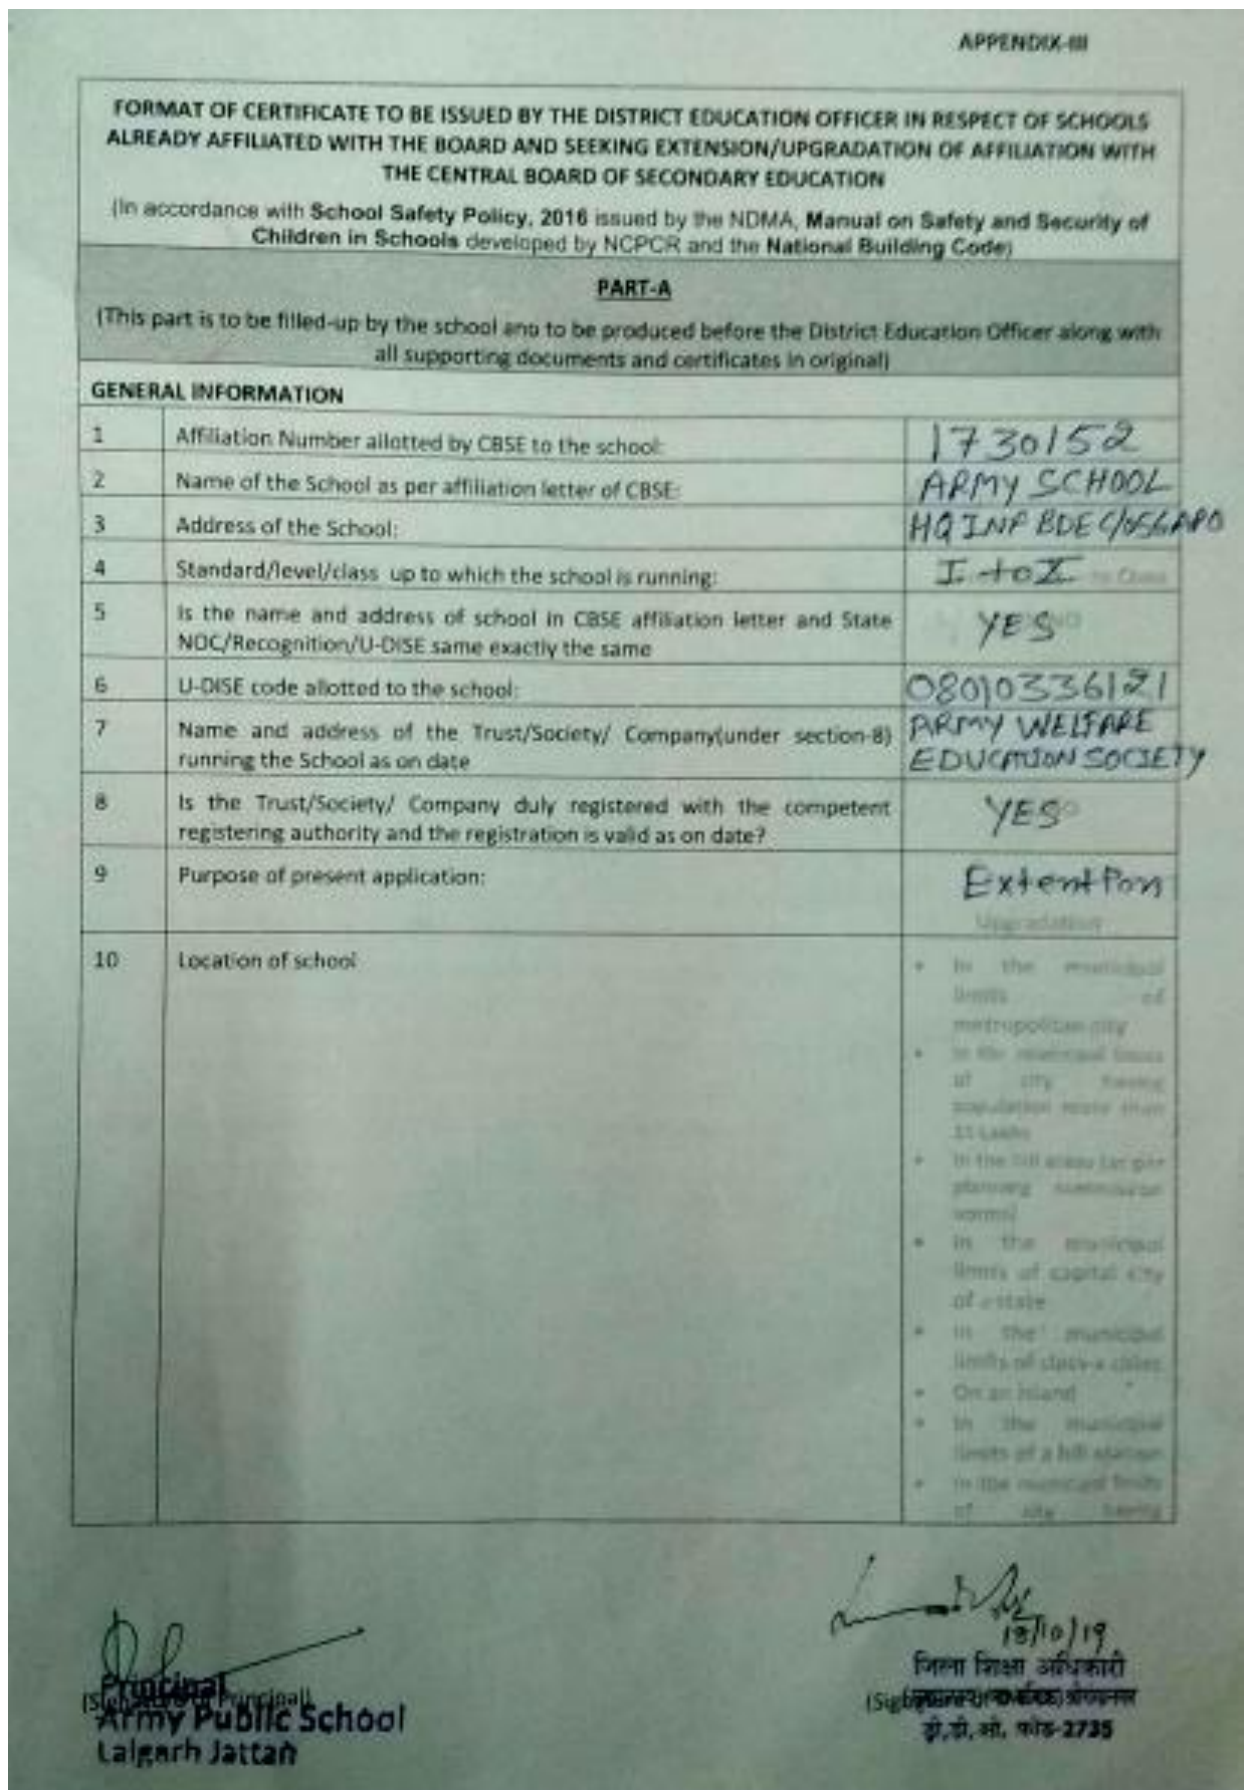 APPENDIX-III
FORMAT OF CERTIFICATE TO BE ISSUED BY THE DISTRICT EDUCATION OFFICER IN RESPECT OF SCHOOLS
ALREADY AFFILIATED WITH THE BOARD AND SEEKING EXTENSION/UPGRADATION OF AFFILIATION WITH
THE CENTRAL BOARD OF SECONDARY EDUCATION
(In accordance with School Safety Policy, 2016 issued by the NDMA, Manual on Safety and Security of
Children in Schools developed by NCPCR and the National Building Code)
PART-A
(This part is to be filled-up by the school and to be produced before the District Education Officer along with
all supporting documents and certificates in original)
GENERAL INFORMATION
1 Affiliation Number allotted by CBSE to the school: 1730152
2 Name of the School as per affiliation letter of CBSE: ARMY SCHOOL
3 Address of the School: HQ INF BDE C/O 56 APO
4 Standard/level/class up to which the school is running: I to X
5 Is the name and address of school in CBSE affiliation letter and State
NOC/Recognition/U-DISE same exactly the same
YES
6 U-DISE code allotted to the school: 08010336121
7 Name and address of the Trust/Society/ Company(under section-8)
running the School as on date
ARMY WELFARE
EDUCATION SOCIETY
8 Is the Trust/Society/ Company duly registered with the competent
registering authority and the registration is valid as on date?
YES
9 Purpose of present application:
Upgradation
10 Location of school
• In the municipal
limits of
metropolitan city
• In the municipal limits
of city having
population more than
• In the hill areas (as per
planning commission
norms)
• In the municipal
limits of capital city
of a state
• In the municipal
limits of class-x cities
• On an island
• In the municipal
limits of a hill station
• In the municipal limits
of city having
18/10/19
Principal
(Signature of Principal)
Army Public School
Lalgarh Jattan
जिला शिक्षा अधिकारी
डी.डी.ओ. कोड-2735